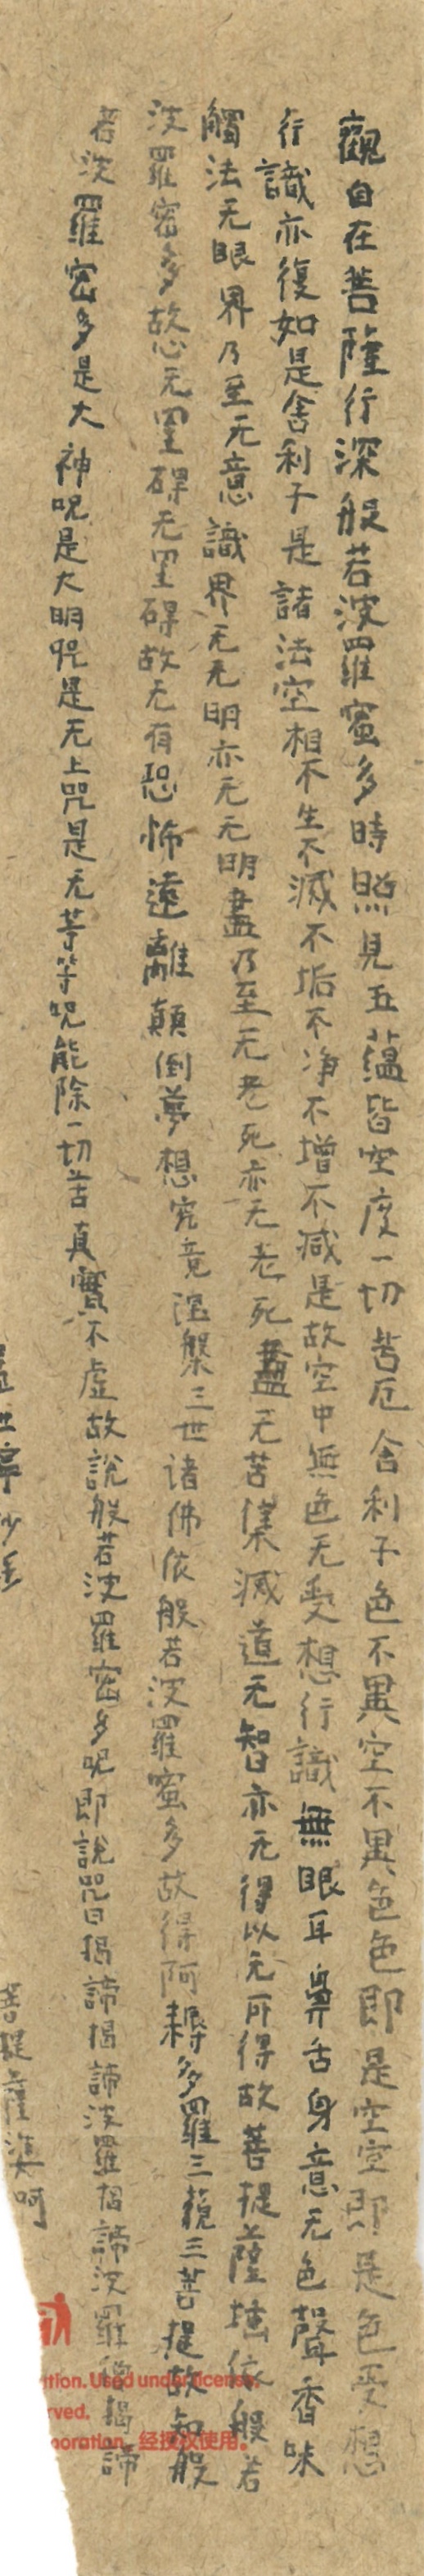 觀自在菩薩行深般若波羅蜜多時照見五蘊皆空度一切苦厄舍利子色不異空不異色色即是空空即是色受想
行識亦復如是舍利子是諸法空相不生不滅不垢不净不增不减是故空中無色无受想行識無眼耳鼻舌身意无色聲香味
觸法无眼界乃至无意識界无无明亦无无明盡乃至无老死亦无老死盡无苦集滅道无智亦无得以无所得故菩提薩埵依般若
波羅密多故心无罣碍无罣碍故无有恐怖遠離顛倒夢想究竟涅槃三世诸佛依般若波羅蜜多故得阿耨多羅三藐三菩提故知般
若波羅密多是大神呪是大明咒是无上咒是无等等呪能除一切苦真實不虛故説般若波羅密多呪即説咒曰揭諦揭諦波羅揭諦波羅僧揭諦
菩提薩婆呵
Used under license.
rved.
poration. 经授权使用。